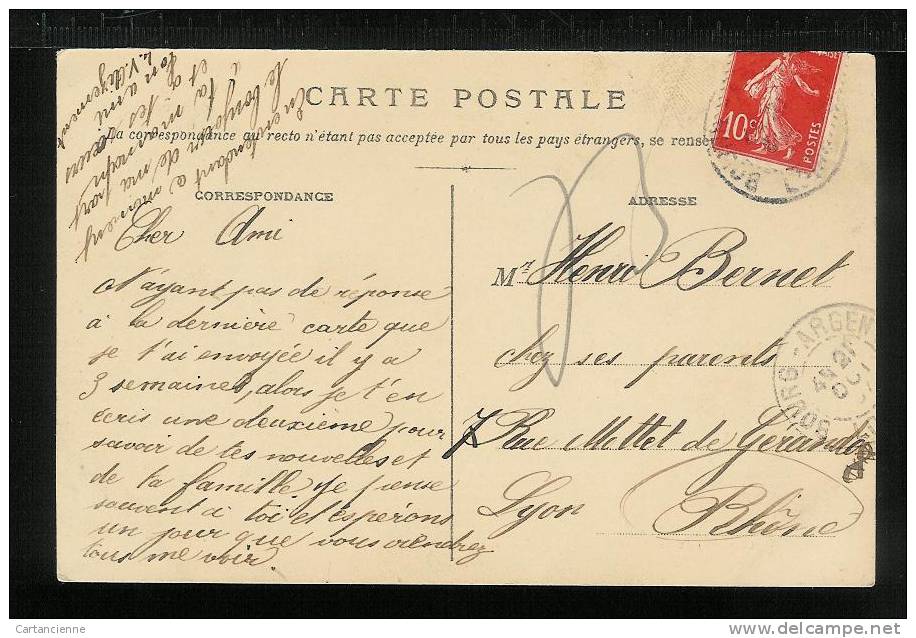 CARTE POSTALE
La correspondance au recto n'étant pas acceptée par tous les pays étrangers, se rense
CORRESPONDANCE
Cher Ami
N'ayant pas de réponse
à la dernière carte que
je t'ai envoyée il y a
3 semaines, alors je t'en
ecris une deuxième pour
savoir de tes nouvelles et
de ta famille. Je pense
souvent à toi et espérons
un jour que vous viendrez
tous me voir.
En attendant ce moment
le bonjour de ma part
et a
à tes
Ton ami
ADRESSE
Mr Henri Bernet
chez ses parents
7 Rue Mottet de Gérando
Lyon Rhône
10c
POSTES
BOURG-ARGEN
21
OCT
Cartancienne
www.delcampe.net